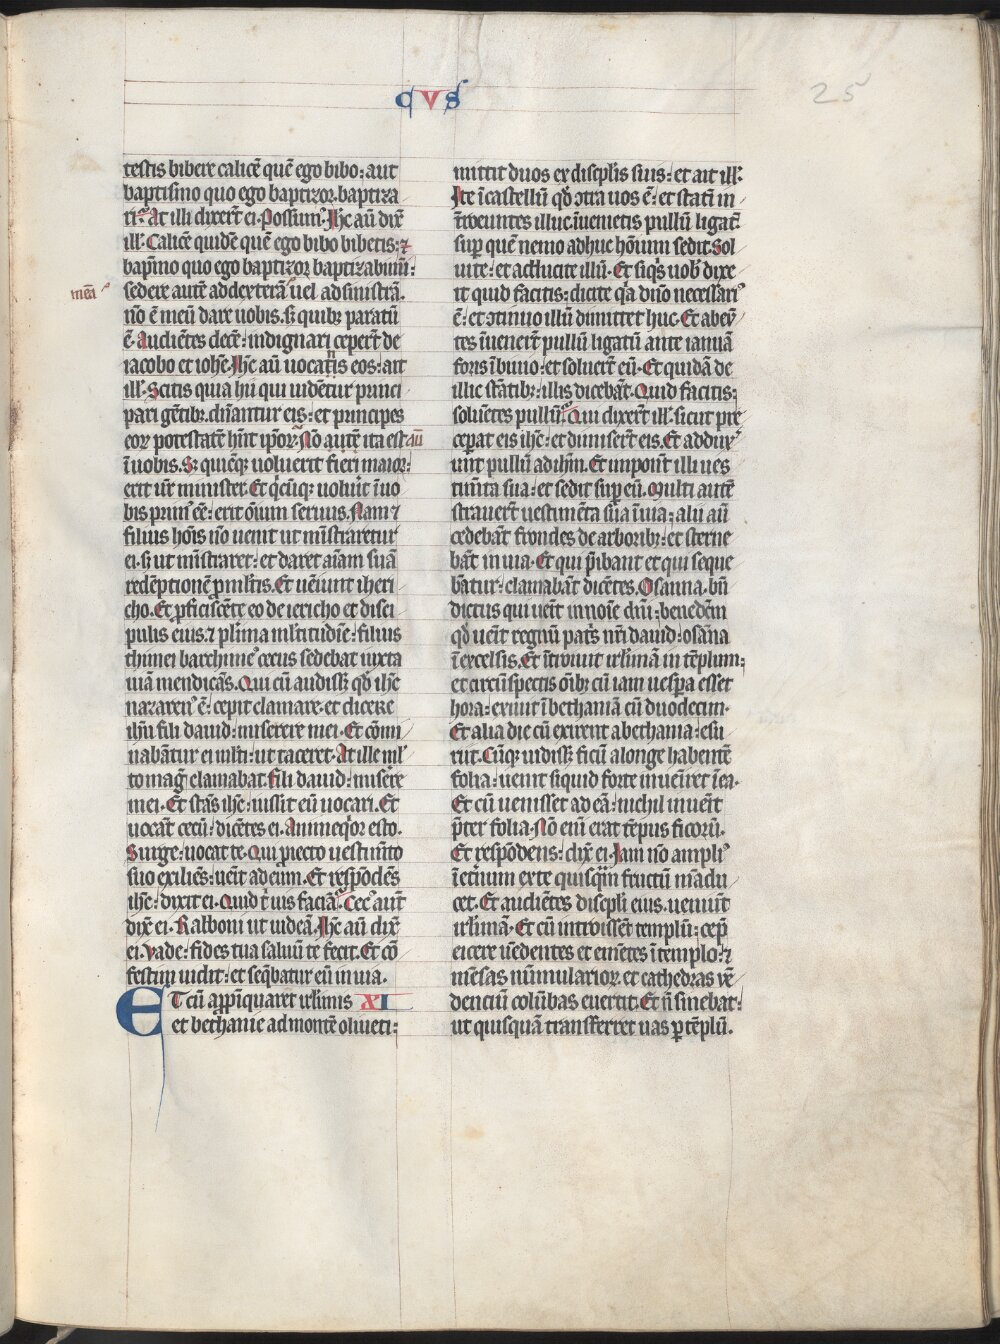 qVS
25
testis bibere calicē quē ego bibo: aut
baptismo quo ego baptizor. baptiza
ri? At illi dixert̄ ei. Possum᷒. Ihc aū dix̄
ill᷒. Calicē quidē quē ego bibo bibetis: ⁊
bapṃo quo ego baptizor baptizabimī:
mēā
sedere autē ad dexterā uel ad sinistrā.
nō ē meū dare uobis. s; quibꝫ paratū
ē. Audiētes decē: indignari cepert̄ de
iacobo et iohē. Ihc aū uocatīs eos: ait
ill᷒. Scitis quia hii qui uidētur princi
pari gētibꝫ. dn̄antur eis: et principes
eoꝝ potestatē hn̄t ipoꝝ. Nō autē ita est
aū
ī uobis. S; quicūqꝫ uoluerit fieri maior:
erit ur̄ minister. Et q̄cūqꝫ uoluit̄ ī uo
bis prim᷒ eē: erit oīum seruus. Nam ⁊
filius hoīs nō uenit ut mīstraretur
ei. s; ut mīstraret: et daret aīam suā
redēptionē ꝓ multis. Et uēiunt iheri
cho. Et ꝓficiscēte eo de iericho et disci
pulis eius. ⁊ plīma mltitudīe: filius
thimei barthime᷒ cecus sedebat iuxta
uiā mendicās. Qui cū audiss; qđ ihc̄
nazaren᷒ ē: cepit clamare. et dicere
ihū fili dauid: miserere mei. Et cōmi
nabātur ei mlti: ut taceret. At ille ml᷒
to maḡ clamabat. fili dauid: miserē
mei. Et stās ihc̄: iussit eū uocari. Et
uocāt cecū: dicētes ei. Animeq̄or esto.
Surge: uocat te. Qui ꝓiecto uestimīto
suo exiliēs: ueīt ad eum. Et respōdēs
ihc̄: dixit ei. Quid t̄ uis faciā? Cec᷒ aut̄
dix̄ ei. Raboni ut uideā. Ihc̄ aū dix̄
ei. Vade: fides tua saluū te fecit. Et cō
festim uidit: et seq̄batur eū in uia.
ET cū appīquaret irlīmis XI
et bethanie ad montē oliueti:
mittit duos ex discpl̄is suis: et ait ill᷒:
Ite ī castellū qđ ɔtra uos ē: et statī in
troeuntes illuc. īuenietis pullū ligat̄:
sup̄ quē nemo adhuc hoīnum sedit. Sol
uite: et adducite illū. Et siq̄s uob̄ dixe
it quid facitis: dicite q̄a dn̄o necessari᷒
ē: et ɔtinuo illū dimittet huc. Et abeū
tes īuenert̄ pullū ligatū ante ianuā
foris ī biuio: et soluert̄ eū. Et quidā de
illic stātibꝫ: illis dicebāt. Quid facitis:
soluētes pullū? Qui dixert̄ ill᷒. sicut pre
cep̄at eis ihc̄: et dimisert̄ eis. Et addux᷒
unt pullū ad ihm̄. Et imponūt illi ues
timīta sua: et sedit sup̄ eū. Multi autē
strauert̄ uestimēta sua ī uia: alii aū
cedebāt frondes de arboribꝫ: et sterne
bāt in uia. Et qui p̄ibant et qui seque
bātur: clamabāt dicētes. Osanna. bn̄
dictus qui ueīt in noīe dn̄i: benedcm̄
qđ ueīt regnū pat̄s nr̄i dauid: osāna
ī excelsis. Et ītroiuit irlīmā in tēplum:
et circūspectis oībꝫ cū iam uesp̄a esset
hora: exiuit ī bethaniā cū duodecim.
Et alia die cū exirent a bethania: esu
riit. Cūqꝫ uidiss; ficū a longe habentē
folia: uenit siquid forte inueīret ī ea.
Et cū uenisset ad eā: nichil inueīt
p̄ter folia. Nō enī erat tēpus ficoꝝ.
Et respōdens: dix̄ ei. Iam nō ampli᷒
ī et̄num ex te quisq̄m fructū mādu
cet. Et audiētes discipl̄i eius. ueniūt
irlīmā. Et cū introissēt templū: cep̄
eicere uēdentes et emētes ī templo: ⁊
mēsas nūmularioꝝ. et cathedras uē
dentiū colūbas euertit. Et n̄ sinebat:
ut quisquā transferret uas ꝑ tēplū.